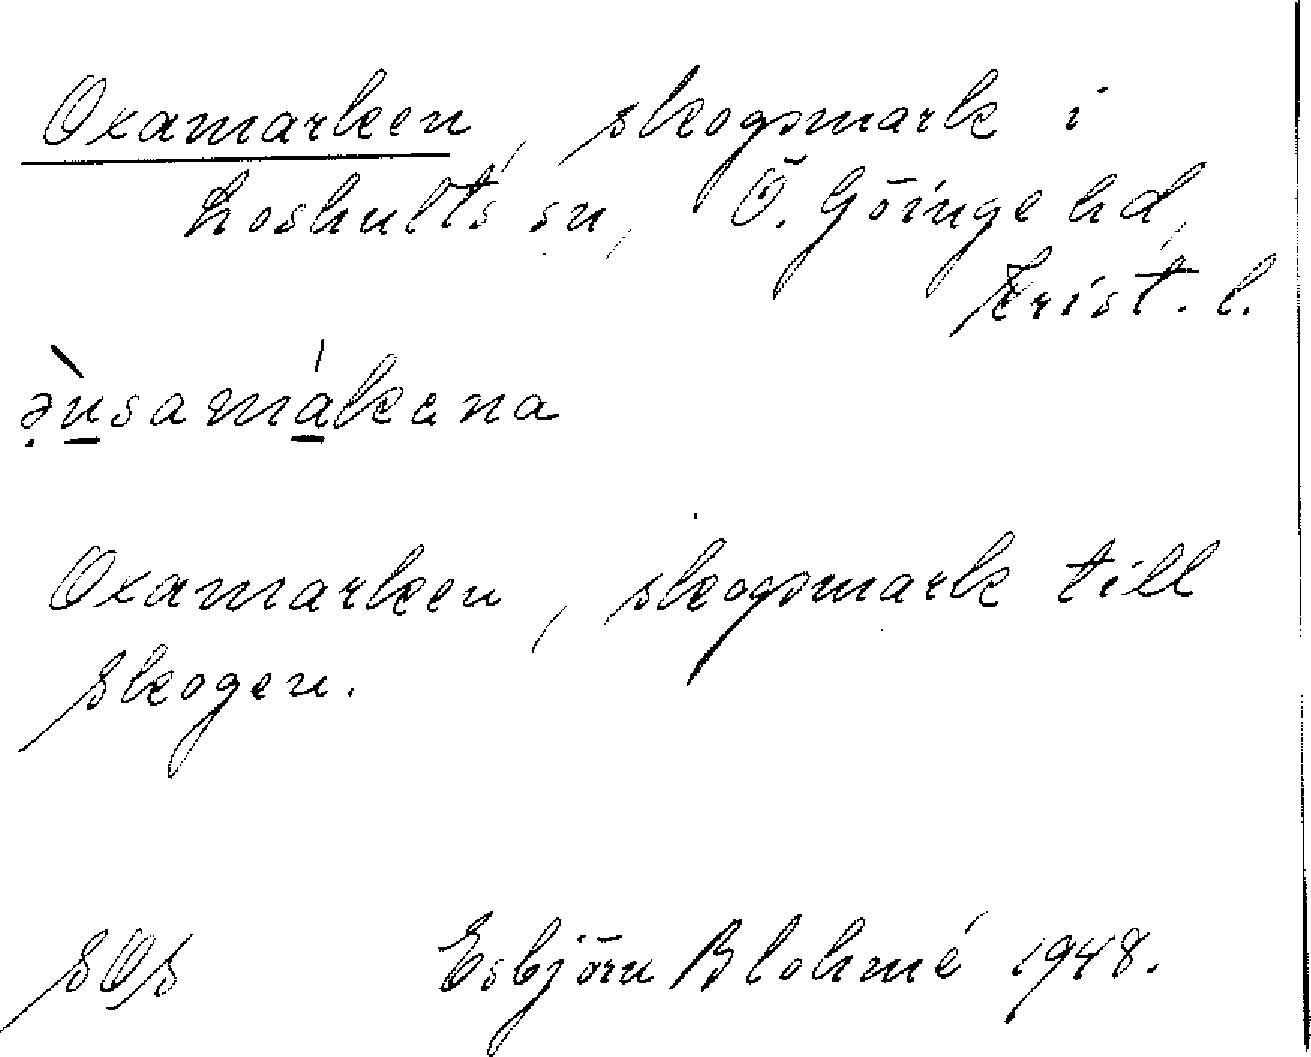 Oxamarken, skogsmark i
Loshults sn, Ö. Göinge hd,
Krist. l.
Oxamarken, skogsmark till
Skogen.
SOS Esbjörn Blohmé 1948.